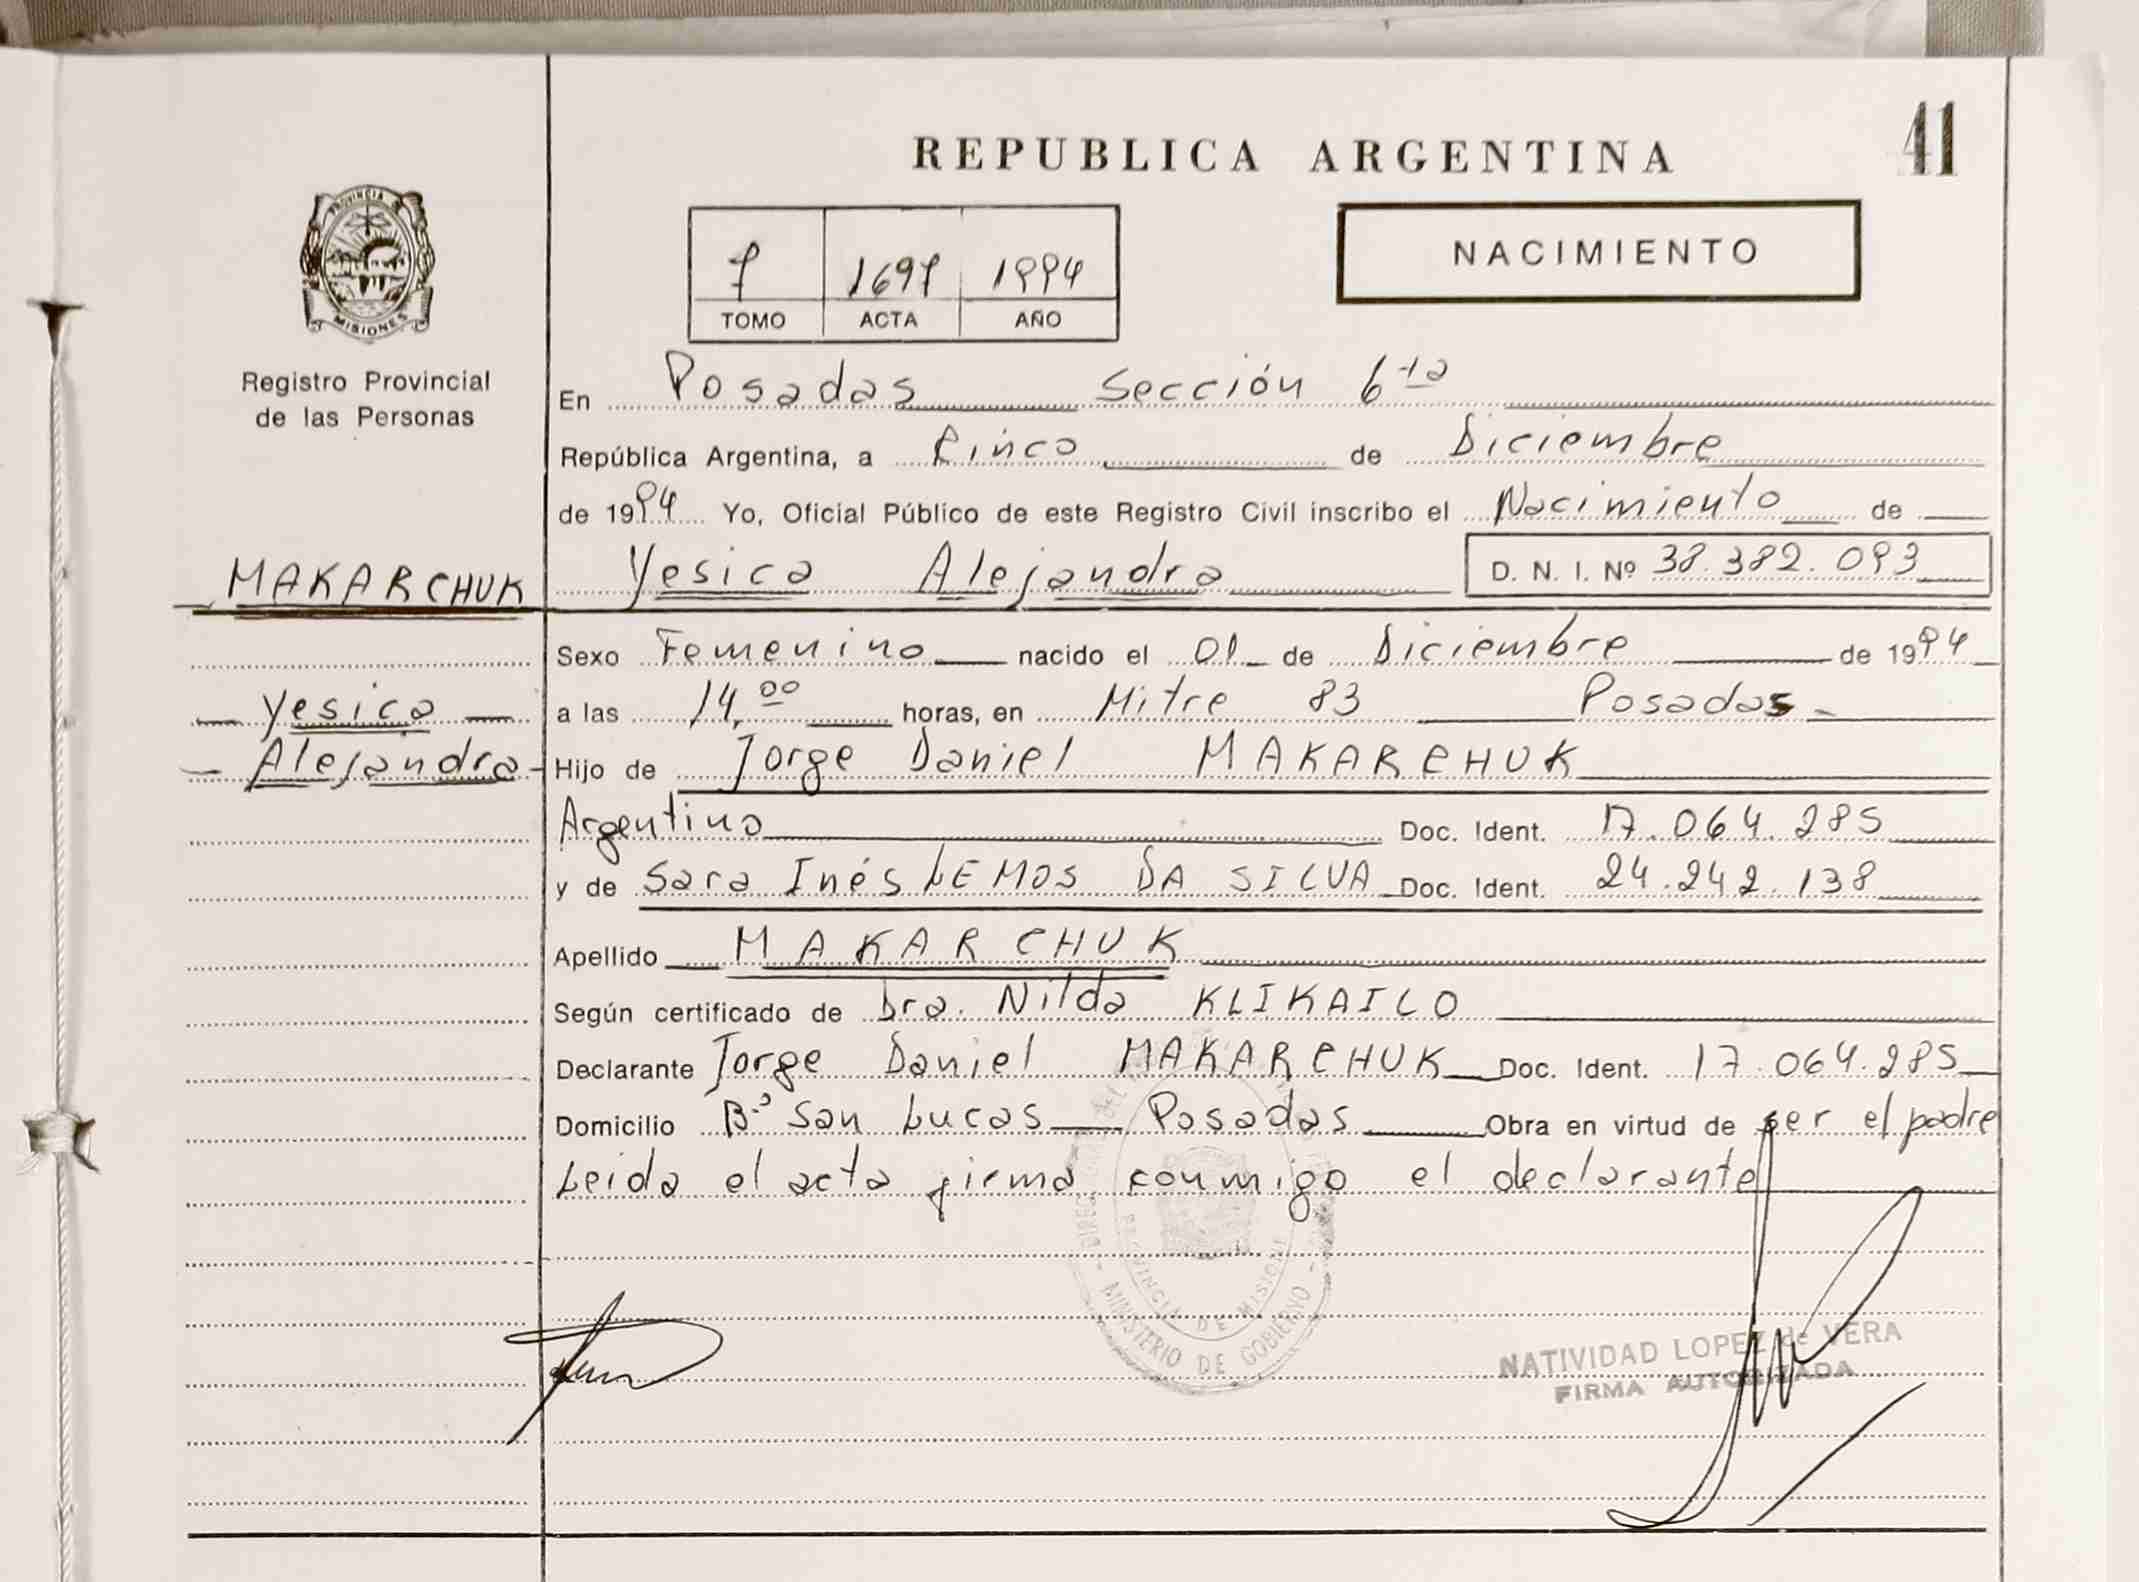 41
REPUBLICA ARGENTINA
NACIMIENTO
7 1697 1994
TOMO ACTA AÑO
PROVINCIA DE
MISIONES
Registro Provincial
de las Personas
En Posadas Sección 6ta
República Argentina, a Cinco de Diciembre
de 1994 Yo, Oficial Público de este Registro Civil inscribo el Nacimiento de
MAKARCHUK Yesica Alejandra D. N. I. Nº 38.382.093
Sexo Femenino nacido el 01 de Diciembre de 1994
Yesica a las 14,00 horas, en Mitre 83 Posadas
Alejandra Hijo de Jorge Daniel MAKARCHUK
Argentino Doc. Ident. 17.064.285
y de Sara Inés LEMOS DA SILVA Doc. Ident. 24.242.138
Apellido MAKARCHUK
Según certificado de Dra. Nilda KLIKAILO
Declarante Jorge Daniel MAKARCHUK Doc. Ident. 17.064.285
Domicilio Bº San Lucas Posadas Obra en virtud de ser el padre
Leida el acta firma conmigo el declarante
PROVINCIA DE MISIONES
MINISTERIO DE GOBIERNO
NATIVIDAD LOPEZ de VERA
FIRMA AUTORIZADA